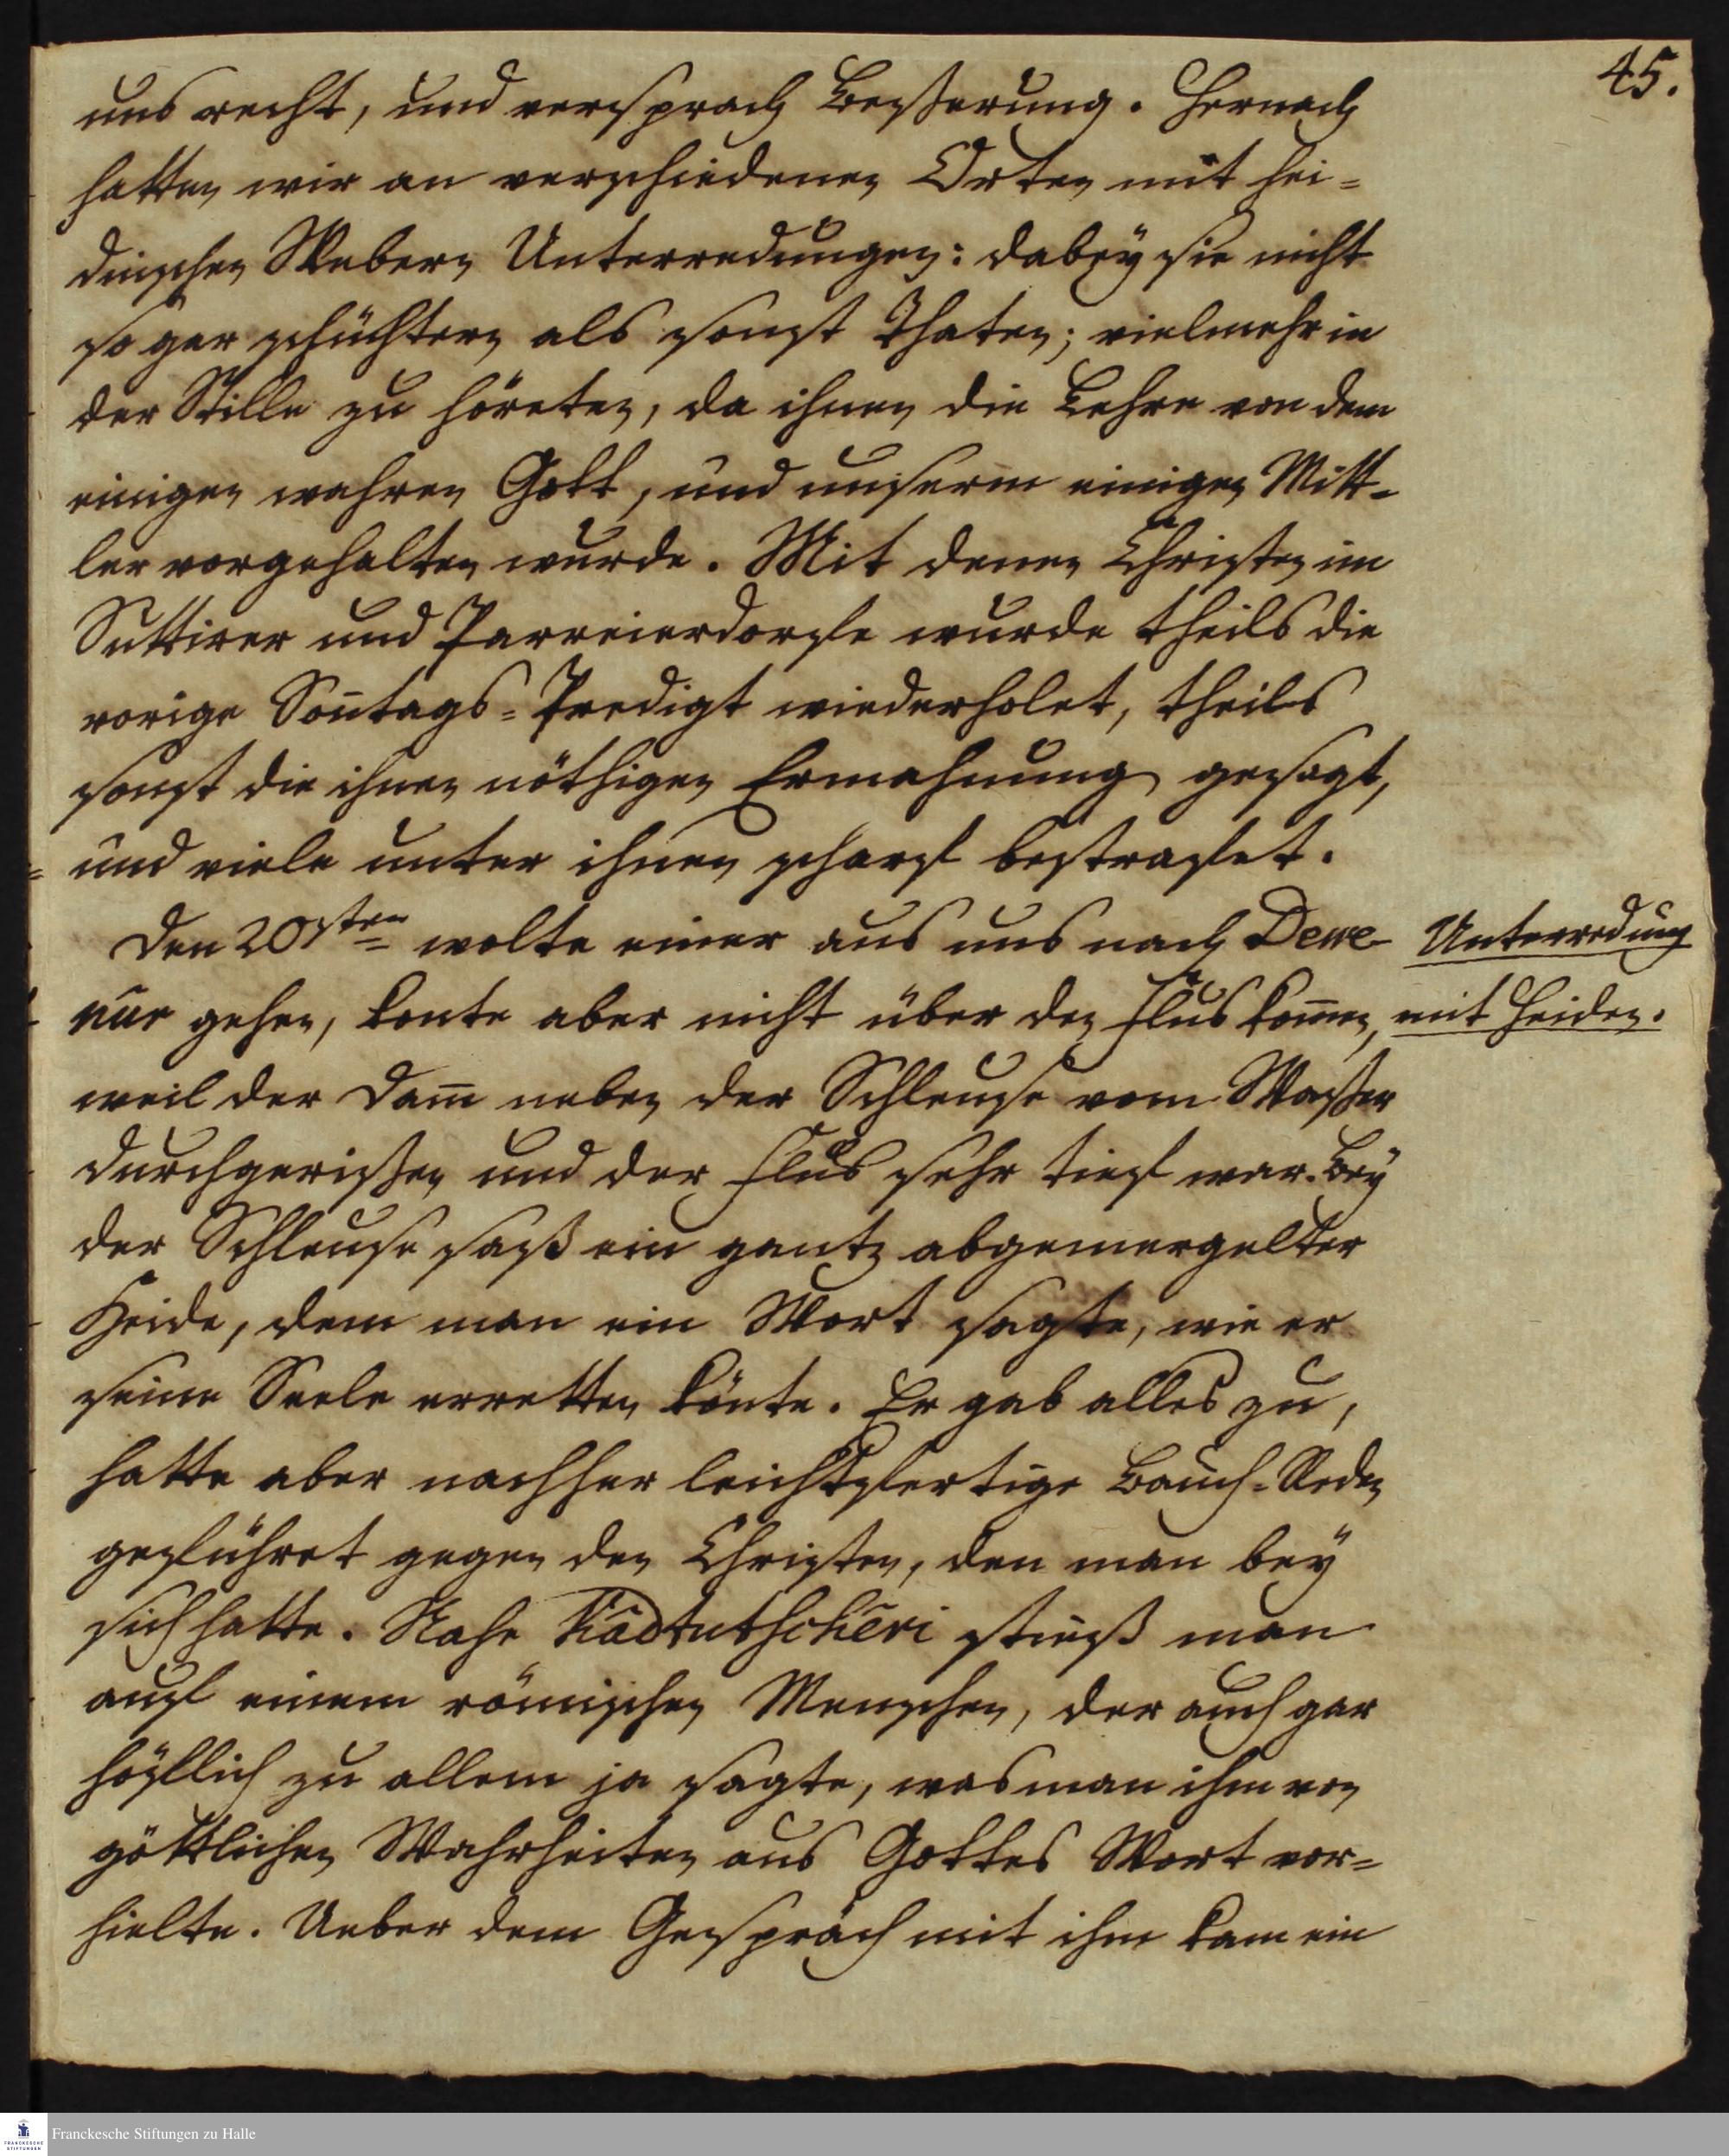 45.
uns recht, und versprach Beßerung. Hernach
hatten wir an verschiedenen Orten mit hei-
dnischen Webern Unterredungen: dabey sie nicht
so gar schüchtern als sonst thaten; vielmehr in
der Stille zu höreten, da ihnen die Lehre von dem
einigen wahren Gott, und unserm einigen Mitt-
ler vorgehalten wurde. Mit denen Christen im
Suttirer und Parreierdorfe wurde theils die
vorige Som̄tags-Predigt wiederholet, theils
sonst die ihnen nöthigen Ermahnung gesagt,
und viele unter ihnen scharf bestrafet.
Den 20sten wolte einer aus uns nach Dewe
Unterredung
nur gehen, konte aber nicht über den Flus kom̄en,
mit Heiden.
weil der Dam̄ neben der Schleuse vom Waßer
durchgerißen und der Flus sehr tief war. Bey
der Schleuse saß ein gantz abgemergelter
Heide, dem man ein Wort sagte, wie er
seine Seele erretten könte. Er gab alles zu,
hatte aber nachher leichtfertige Bauch-Reden
geführet gegen den Christen, den man bey
sich hatte. Nahe Kâdtutschēri stieß man
auf einem römischen Menschen, der auch gar
höflich zu allem ja sagte, was man ihm von
göttlichen Wahrheiten aus Gottes Wort vor-
hielte. Ueber dem Gespräch mit ihm kam ein
Franckesche Stiftungen zu Halle
FRANCKESCHE
STIFTUNGEN